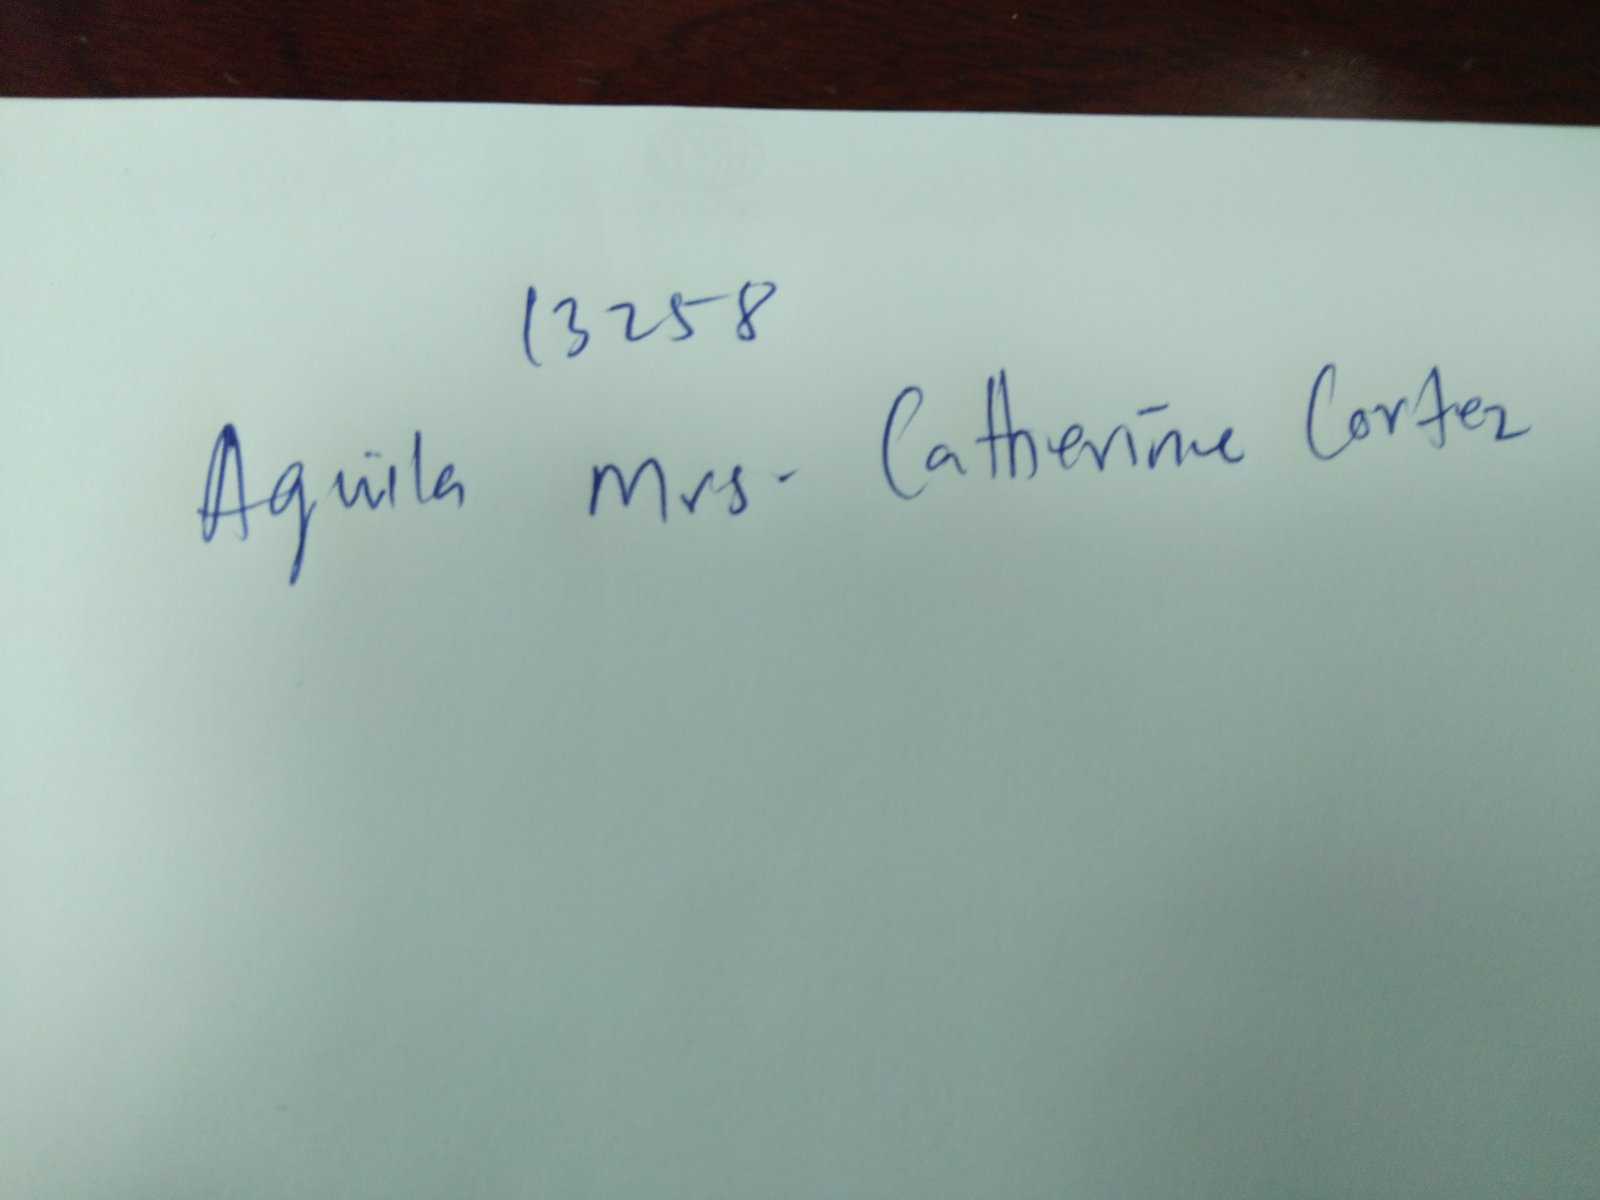 13258
Aquila Mrs. Catherine Cortez